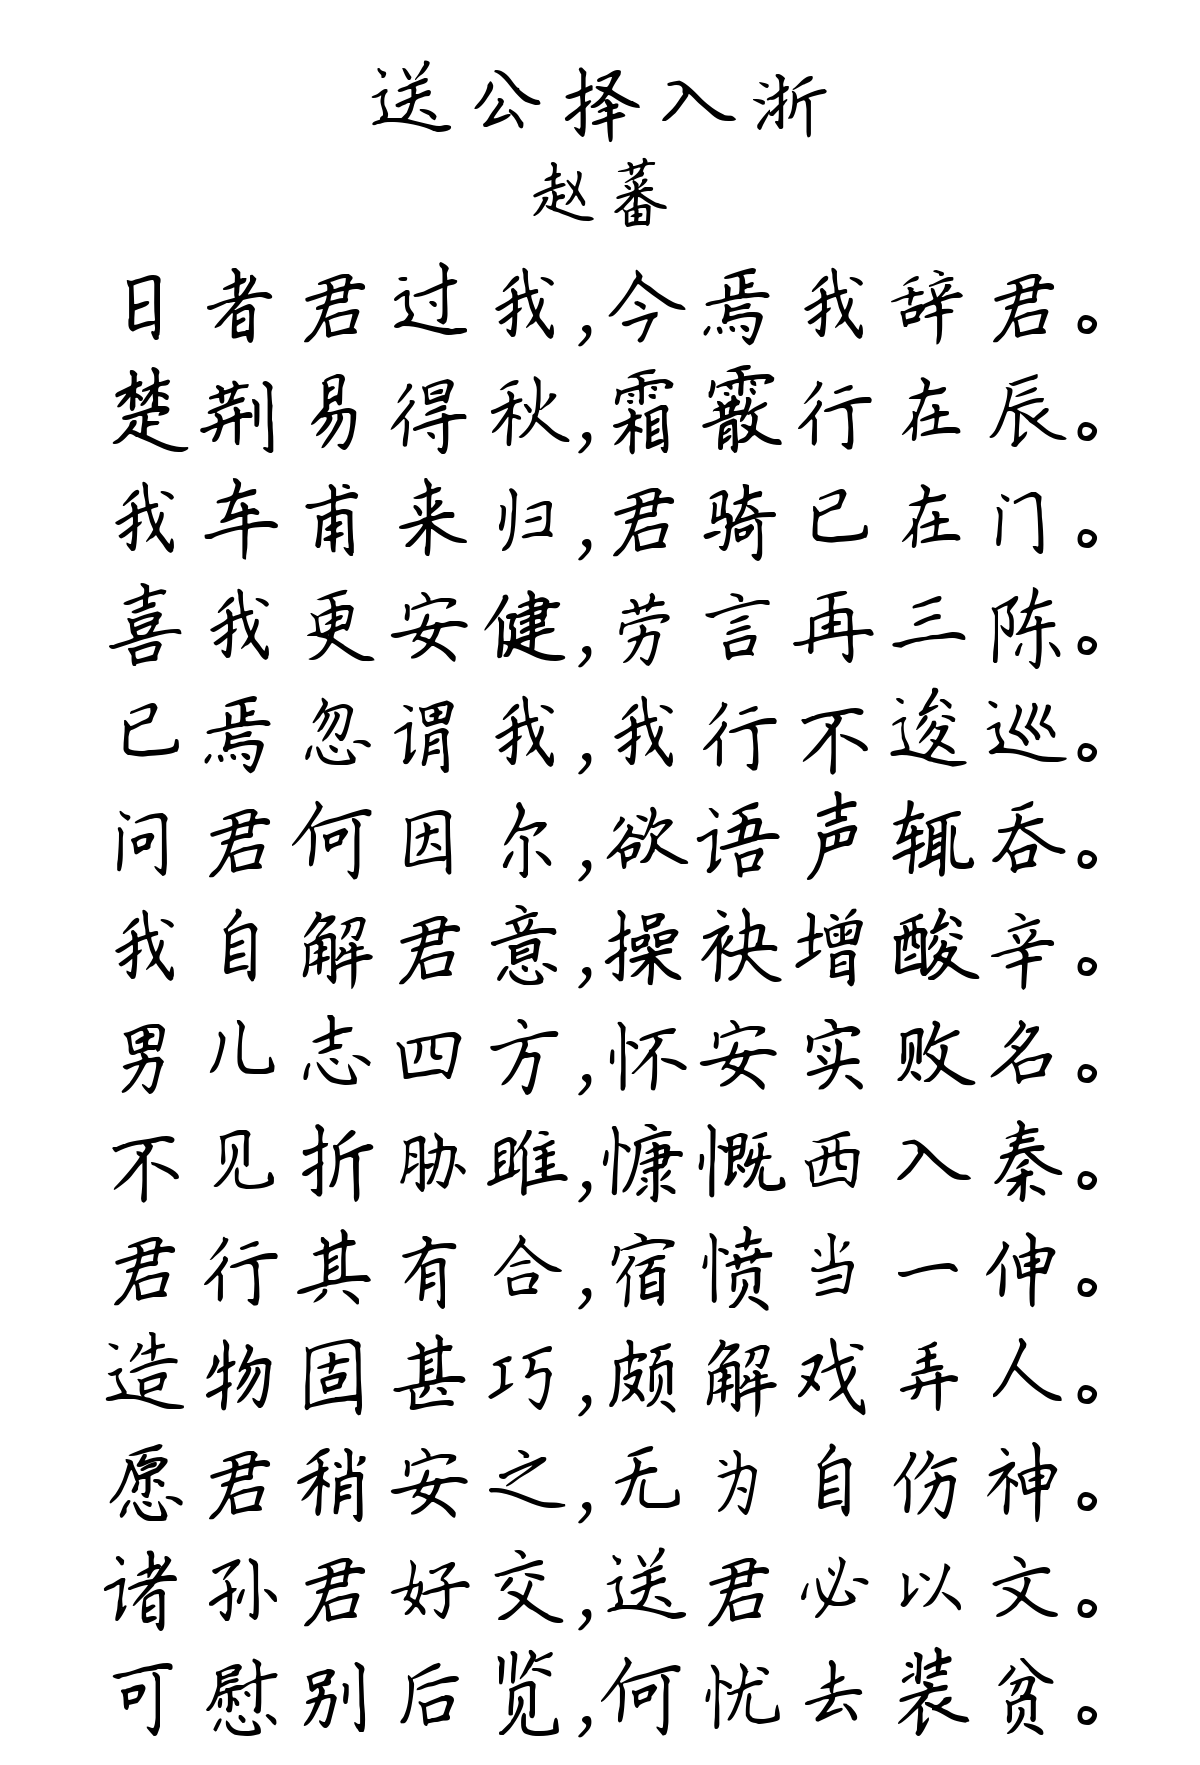 送公择入浙
赵蕃
日者君过我,今焉我辞君。
楚荆易得秋,霜霰行在辰。
我车甫来归,君骑已在门。
喜我更安健,劳言再三陈。
已焉忽谓我,我行不逡巡。
问君何因尔,欲语声辄吞。
我自解君意,操袂增酸辛。
男儿志四方,怀安实败名。
不见折胁雎,慷慨西入秦。
君行其有合,宿愤当一伸。
造物固甚巧,颇解戏弄人。
愿君稍安之,无为自伤神。
诸孙君好交,送君必以文。
可慰别后览,何忧去装贫。